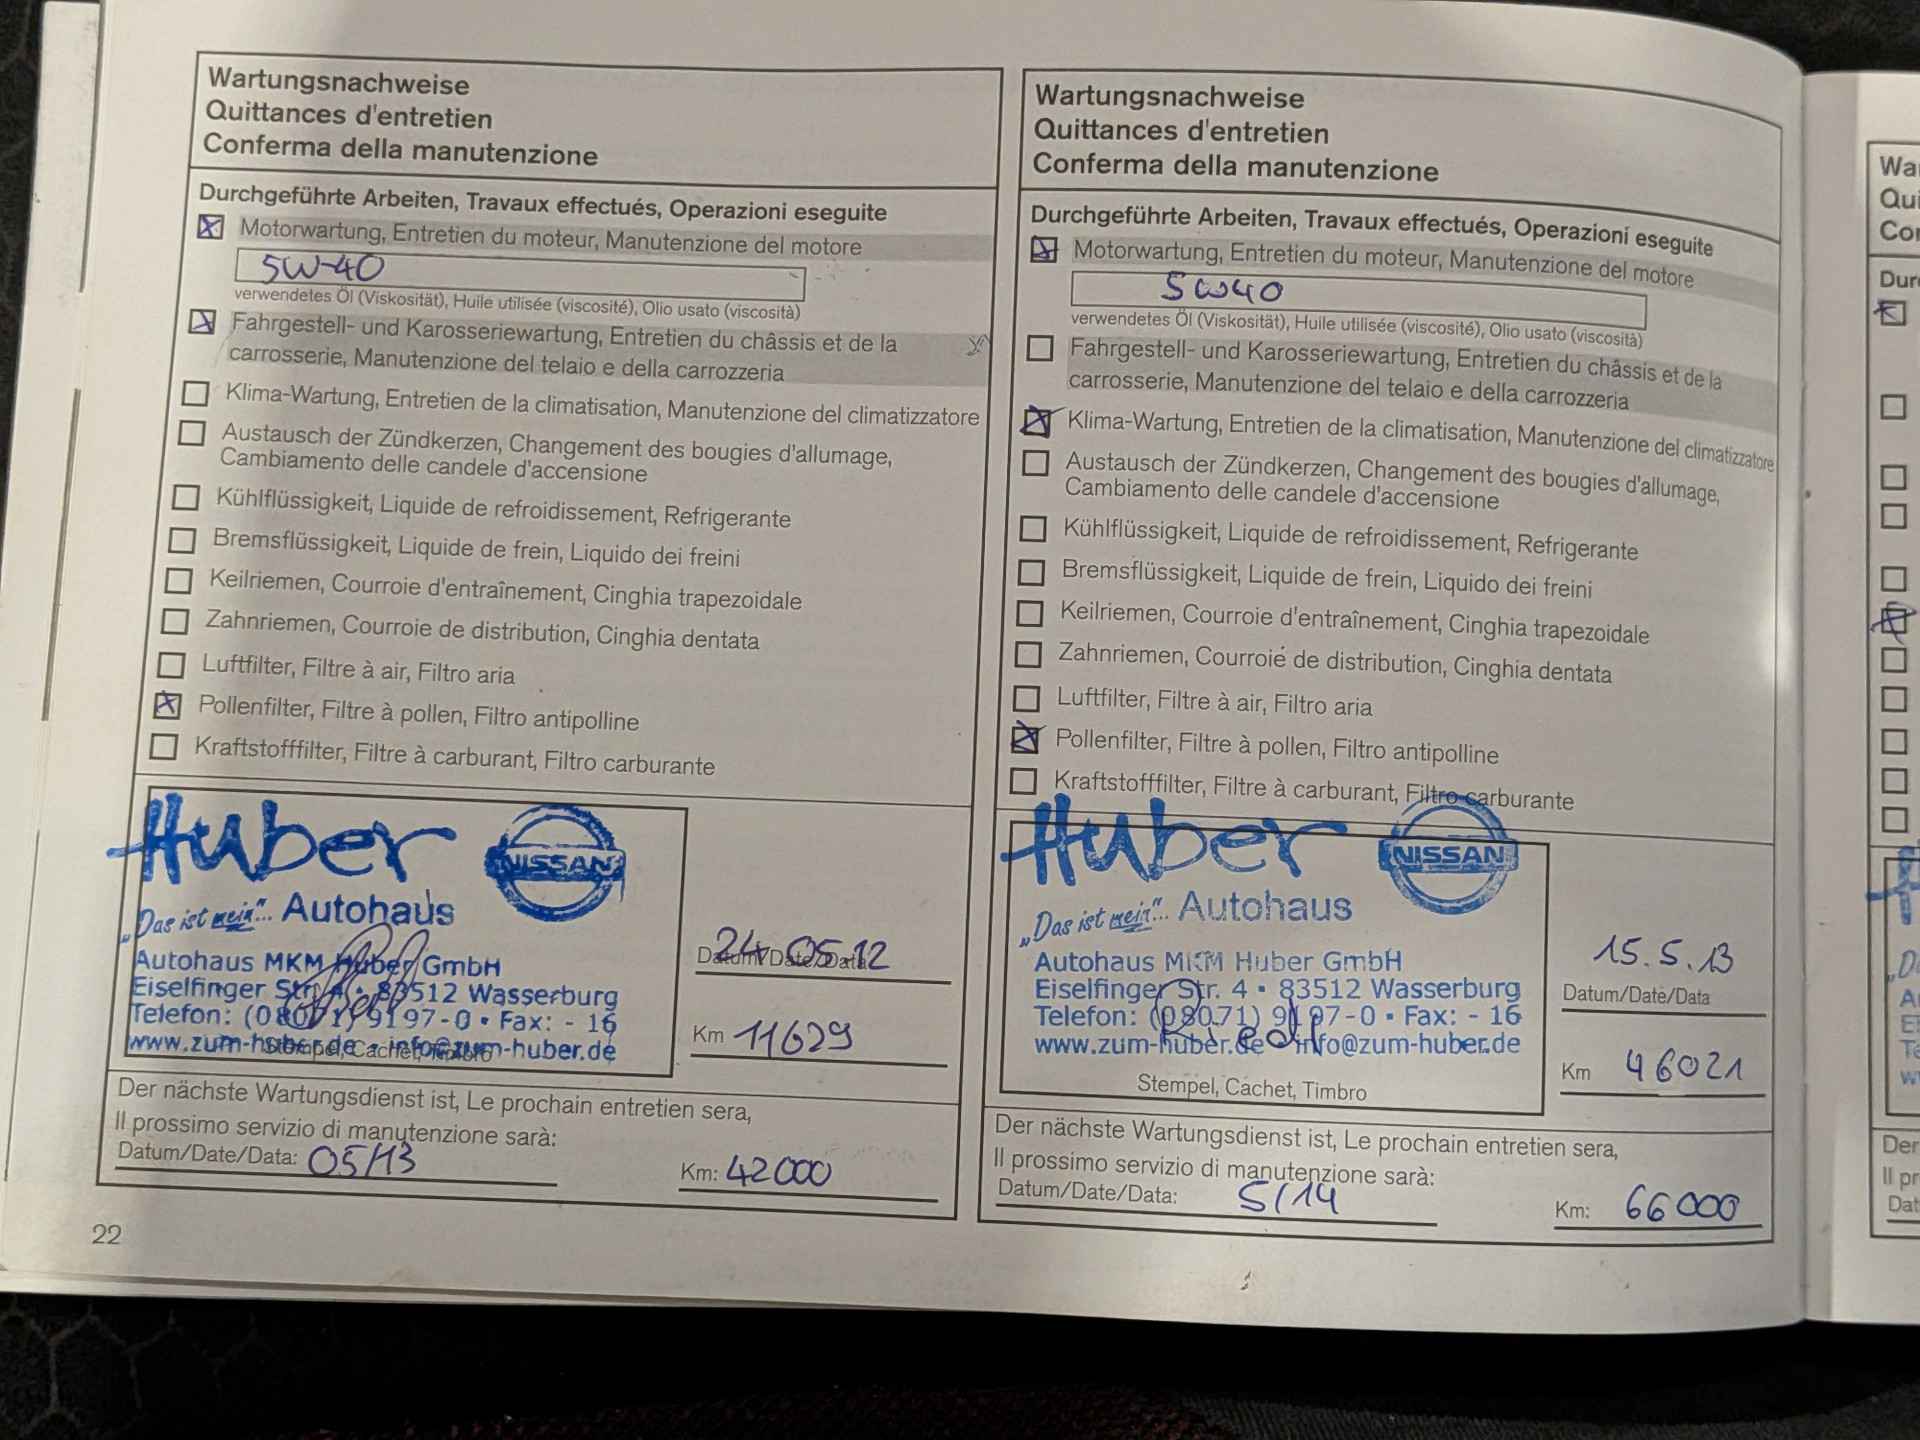 Wartungsnachweise
Quittances d'entretien
Conferma della manutenzione
Durchgeführte Arbeiten, Travaux effectués, Operazioni eseguite
Motorwartung, Entretien du moteur, Manutenzione del motore
5W-40
verwendetes Öl (Viskosität), Huile utilisée (viscosité), Olio usato (viscosità)
Fahrgestell- und Karosseriewartung, Entretien du châssis et de la
carrosserie, Manutenzione del telaio e della carrozzeria
Klima-Wartung, Entretien de la climatisation, Manutenzione del climatizzatore
Austausch der Zündkerzen, Changement des bougies d'allumage,
Cambiamento delle candele d'accensione
Kühlflüssigkeit, Liquide de refroidissement, Refrigerante
Bremsflüssigkeit, Liquide de frein, Liquido dei freini
Keilriemen, Courroie d'entraînement, Cinghia trapezoidale
Zahnriemen, Courroie de distribution, Cinghia dentata
Luftfilter, Filtre à air, Filtro aria
Pollenfilter, Filtre à pollen, Filtro antipolline
Kraftstofffilter, Filtre à carburant, Filtro carburante
Huber NISSAN
„Das ist mein"... Autohaus
Autohaus MKM Huber GmbH
Eiselfinger Str. 4 • 83512 Wasserburg
Telefon: (08071) 9197-0 • Fax: - 16
www.zum-huber.de • info@zum-huber.de
Stempel, Cachet, Timbro
24.05.12
Datum/Date/Data
Km 11629
Der nächste Wartungsdienst ist, Le prochain entretien sera,
Il prossimo servizio di manutenzione sarà:
Datum/Date/Data: 05/13 Km: 42000
22
Wartungsnachweise
Quittances d'entretien
Conferma della manutenzione
Durchgeführte Arbeiten, Travaux effectués, Operazioni eseguite
Motorwartung, Entretien du moteur, Manutenzione del motore
5W40
verwendetes Öl (Viskosität), Huile utilisée (viscosité), Olio usato (viscosità)
Fahrgestell- und Karosseriewartung, Entretien du châssis et de la
carrosserie, Manutenzione del telaio e della carrozzeria
Klima-Wartung, Entretien de la climatisation, Manutenzione del climatizzatore
Austausch der Zündkerzen, Changement des bougies d'allumage,
Cambiamento delle candele d'accensione
Kühlflüssigkeit, Liquide de refroidissement, Refrigerante
Bremsflüssigkeit, Liquide de frein, Liquido dei freini
Keilriemen, Courroie d'entraînement, Cinghia trapezoidale
Zahnriemen, Courroie de distribution, Cinghia dentata
Luftfilter, Filtre à air, Filtro aria
Pollenfilter, Filtre à pollen, Filtro antipolline
Kraftstofffilter, Filtre à carburant, Filtro carburante
Huber NISSAN
„Das ist mein"... Autohaus
Autohaus MKM Huber GmbH
Eiselfinger Str. 4 • 83512 Wasserburg
Telefon: (08071) 9197-0 • Fax: - 16
www.zum-huber.de info@zum-huber.de
Stempel, Cachet, Timbro
15.5.13
Datum/Date/Data
Km 46021
Der nächste Wartungsdienst ist, Le prochain entretien sera,
Il prossimo servizio di manutenzione sarà:
Datum/Date/Data: 5/14 Km: 66000